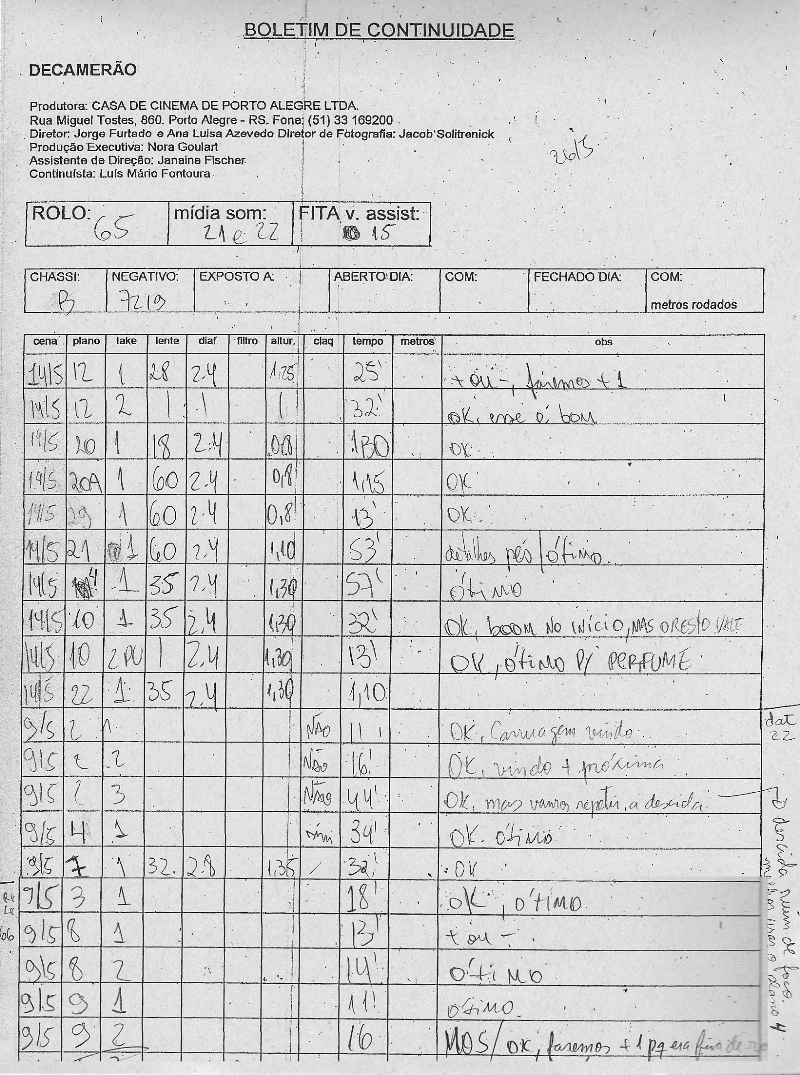 BOLETIM DE CONTINUIDADE
DECAMERÃO
Produtora: CASA DE CINEMA DE PORTO ALEGRE LTDA.
Rua Miguel Tostes, 860. Porto Alegre - RS. Fone: (51) 33 169200
Diretor: Jorge Furtado e Ana Luisa Azevedo Diretor de Fotografia: Jacob Solitrenick
Produção Executiva: Nora Goulart
Assistente de Direção: Janaine Fischer
Continuísta: Luís Mário Fontoura
26/5
ROLO: 65 mídia som: 21 e 22 FITA v. assist: 15
CHASSI: B NEGATIVO: 7219 EXPOSTO A: ABERTO DIA: COM: FECHADO DIA: COM:
metros rodados
cena plano take lente diaf filtro altur. claq tempo metros obs
14/5 12 1 28 2.4 1,25 25' + ou -, faremos + 1
14/5 12 2 | | | 32' OK, esse é bom
14/5 20 1 18 2.4 0,8 1,30 OK
14/5 20A 1 60 2.4 0,8' 1,15 OK
14/5 29 1 60 2.4 0,8' 13' OK
14/5 21 1 60 2.4 1,10 53' detalhes pés / ótimo
14/5 4 1 35 2.4 1,30 57' ótimo
14/5 10 1 35 2,4 1,30 32' OK, BOOM NO INÍCIO, MAS O RESTO VALE
14/5 10 2PU | 2,4 1,30 13' OK, ÓTIMO P/ PERFUME
14/5 22 1 35 2,4 1,30 1,10
9/5 2 1 NÃO 11' OK, Carruagem vindo
dat 22
9/5 2 2 Não 16' OK, vindo + próxima
9/5 2 3 Não 44' OK, mas vamos repetir a descida
9/5 4 1 sim 34' OK. ótimo
9/5 7 1 32. 2.8 1,35 / 32' OK
9/5 3 1 18' OK, ÓTIMO
9/5 8 1 13' + ou -
9/5 8 2 14' ÓTIMO
9/5 9 1 11' ótimo.
9/5 9 2 16 MOS / OK, faremos + 1 pq era fim de
descida ruim de foco
melhor usar o plano 4